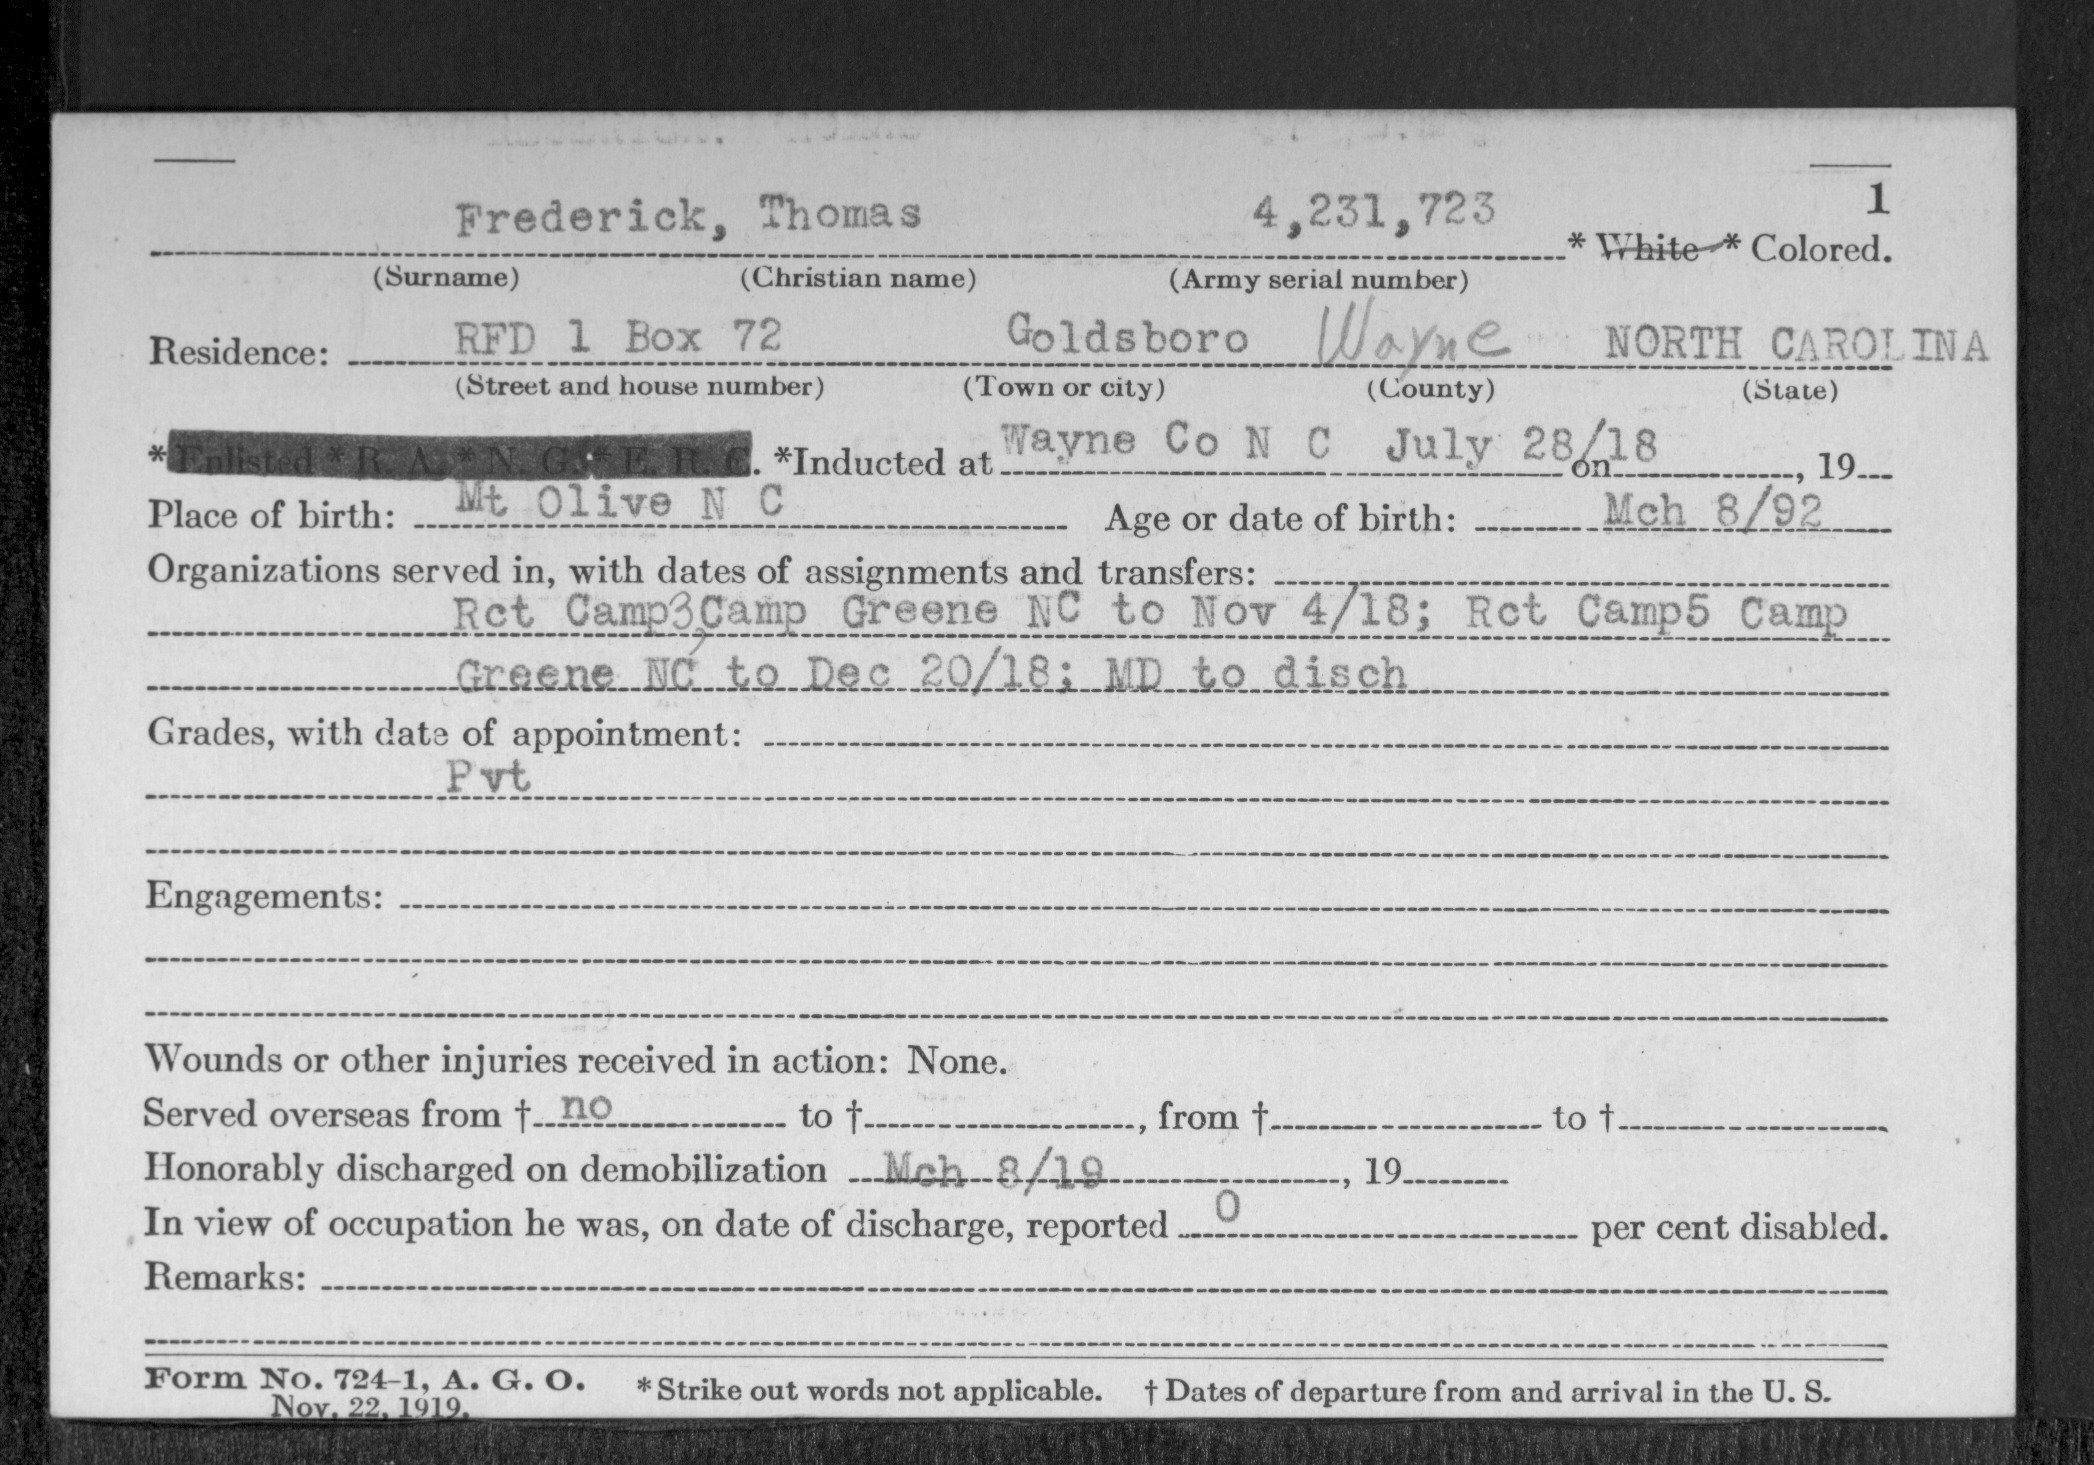 1
Frederick, Thomas 4,231,723 * White * Colored.
(Surname) (Christian name) (Army serial number)
Residence: RFD 1 Box 72 Goldsboro Wayne NORTH CAROLINA
(Street and house number) (Town or city) (County) (State)
*Enlisted * R. A. * N. G. * E. R. C. *Inducted at Wayne Co N C July 28/18 on , 19
Place of birth: Mt Olive N C Age or date of birth: Mch 8/92
Organizations served in, with dates of assignments and transfers:
Rct Camp3,Camp Greene NC to Nov 4/18; Rct Camp5 Camp
Greene NC to Dec 20/18; MD to disch
Grades, with date of appointment:
Pvt
Engagements:
Wounds or other injuries received in action: None.
Served overseas from † no to † , from † to †
Honorably discharged on demobilization Mch 8/19 , 19
In view of occupation he was, on date of discharge, reported 0 per cent disabled.
Remarks:
Form No. 724-1, A. G. O. * Strike out words not applicable. † Dates of departure from and arrival in the U. S.
Nov. 22, 1919.